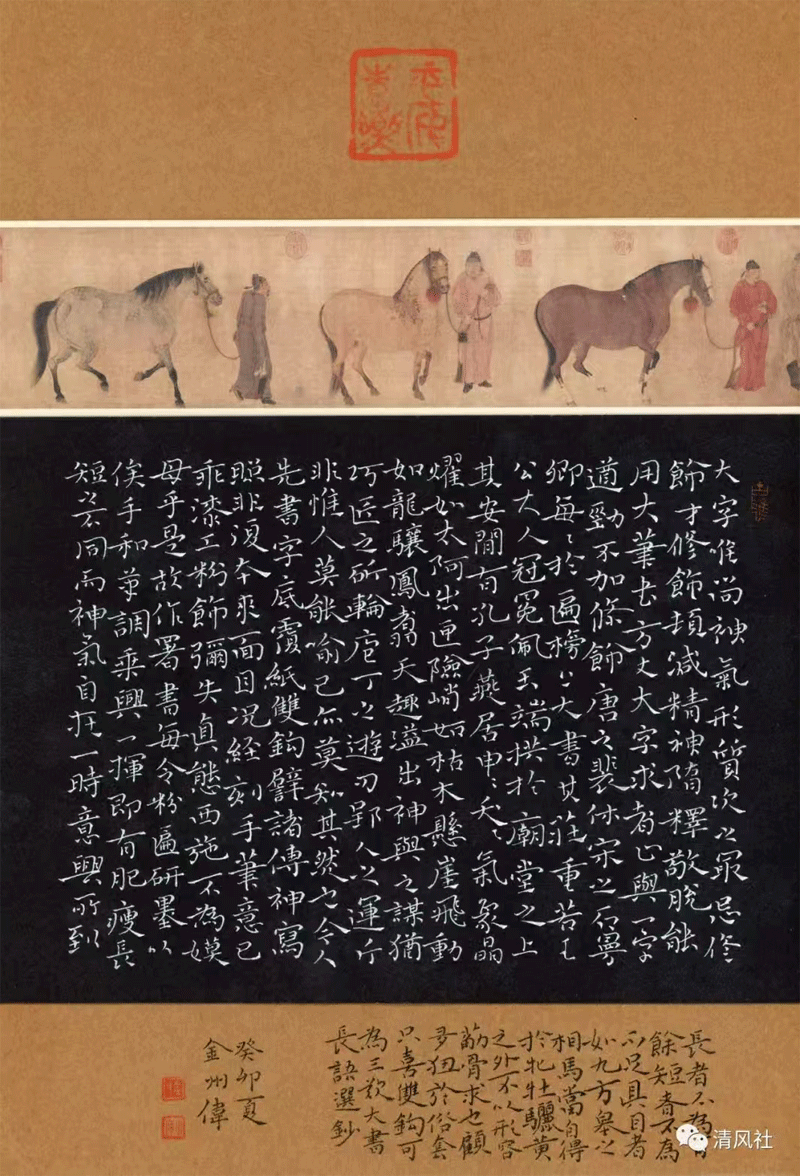 大字唯尚神氣形質次之最忌修
飾才修飾頓減精神隋釋敬脫能
用大筆書方丈大字求者止與一字
遒勁不加條飾唐之裴休宋之石寧
卿每〻於遍榜〻大書其莊重若王
公大人冠冕佩玉端拱於廟堂之上
其安閒有孔子燕居申〻夭〻氣象晶
燿如太阿出匣險峭如枯木懸崖飛動
如龍驤鳳翥天趣溢出神與之謀猶
巧匠之斫輪庖丁之遊刃郢人之運斤
非惟人莫能喻己亦莫知其然也今人
先書字底覆紙雙鈎譬諸傳神寫
照非復本來面目況經刻手筆意已
乖漆工粉飾彌失真態西施不為嫫
母乎是故作署書每令粉匾研墨以
俟手和筆調乘興一揮即有肥瘦長
短之不同而神氣自在一時意興所到
長者不為有
餘短者不為
不足具目者
如九方皋之
相馬當自得
於牝牡驪黃
之外不以形容
筋骨求也顧
多狃於俗套
只喜雙鈎可
為三歎大書
長語選鈔
癸卯夏
金州偉
清风社